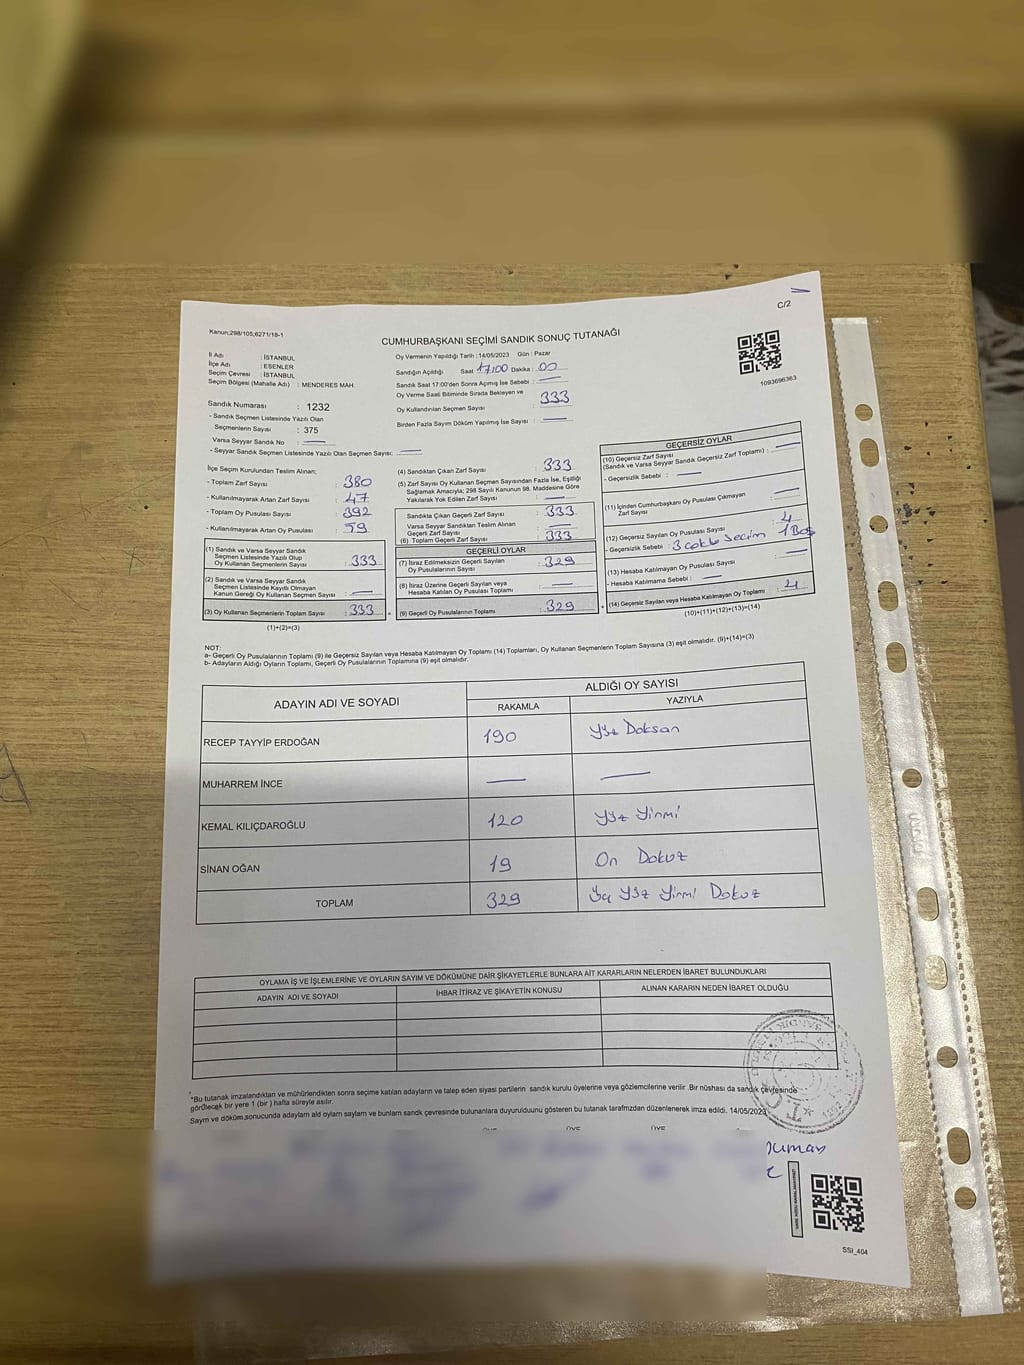 C/2
Kanun;298/105;6271/18-1
CUMHURBAŞKANI SEÇİMİ SANDIK SONUÇ TUTANAĞI
İl Adı : İSTANBUL
İlçe Adı : ESENLER
Seçim Çevresi : İSTANBUL
Seçim Bölgesi (Mahalle Adı) : MENDERES MAH.
Sandık Numarası : 1232
- Sandık Seçmen Listesinde Yazılı Olan
Seçmenlerin Sayısı : 375
Varsa Seyyar Sandık No :
- Seyyar Sandık Seçmen Listesinde Yazılı Olan Seçmen Sayısı:
Oy Vermenin Yapıldığı Tarih :14/05/2023 Gün : Pazar
Sandığın Açıldığı Saat 17:00 Dakika : 00
Sandık Saat 17:00'den Sonra Açımış İse Sebebi :
Oy Verme Saati Bitiminde Sırada Bekleyen ve
Oy Kullandırılan Seçmen Sayısı : 333
Birden Fazla Sayım Döküm Yapılmış İse Sayısı :
1093696363
İlçe Seçim Kurulundan Teslim Alınan;
- Toplam Zarf Sayısı : 380
- Kullanılmayarak Artan Zarf Sayısı : 47
- Toplam Oy Pusulası Sayısı : 392
- Kullanılmayarak Artan Oy Pusulası : 59
(1) Sandık ve Varsa Seyyar Sandık
Seçmen Listesinde Yazılı Olup
Oy Kullanan Seçmenlerin Sayısı : 333
(2) Sandık ve Varsa Seyyar Sandık
Seçmen Listesinde Kayıtlı Olmayan
Kanun Gereği Oy Kullanan Seçmen Sayısı :
(3) Oy Kullanan Seçmenlerin Toplam Sayısı : 333
(1)+(2)=(3)
(4) Sandıktan Çıkan Zarf Sayısı : 333
(5) Zarf Sayısı Oy Kullanan Seçmen Sayısından Fazla İse, Eşitliği
Sağlamak Amacıyla; 298 Sayılı Kanunun 98. Maddesine Göre
Yakılarak Yok Edilen Zarf Sayısı :
Sandıkta Çıkan Geçerli Zarf Sayısı : 333
Varsa Seyyar Sandıktan Teslim Alınan
Geçerli Zarf Sayısı :
(6) Toplam Geçerli Zarf Sayısı : 333
GEÇERLİ OYLAR
(7) İtiraz Edilmeksizin Geçerli Sayılan
Oy Pusulalarının Sayısı : 329
(8) İtiraz Üzerine Geçerli Sayılan veya
Hesaba Katılan Oy Pusulası Toplamı :
(9) Geçerli Oy Pusulalarının Toplamı : 329
GEÇERSİZ OYLAR
(10) Geçersiz Zarf Sayısı
(Sandık ve Varsa Seyyar Sandık Geçersiz Zarf Toplamı) :
- Geçersizlik Sebebi :
(11) İçinden Cumhurbaşkanı Oy Pusulası Çıkmayan
Zarf Sayısı :
(12) Geçersiz Sayılan Oy Pusulası Sayısı : 4
- Geçersizlik Sebebi : 3 çoklu Seçim 1 Boş
(13) Hesaba Katılmayan Oy Pusulası Sayısı :
- Hesaba Katılmama Sebebi :
(14) Geçersiz Sayılan veya Hesaba Katılmayan Oy Toplamı : 4
(10)+(11)+(12)+(13)=(14)
NOT:
a- Geçerli Oy Pusulalarının Toplamı (9) ile Geçersiz Sayılan veya Hesaba Katılmayan Oy Toplamı (14) Toplamları, Oy Kullanan Seçmenlerin Toplam Sayısına (3) eşit olmalıdır. (9)+(14)=(3)
b- Adayların Aldığı Oyların Toplamı, Geçerli Oy Pusulalarının Toplamına (9) eşit olmalıdır.
ADAYIN ADI VE SOYADI ALDIĞI OY SAYISI
RAKAMLA YAZIYLA
RECEP TAYYİP ERDOĞAN 190 Yüz Doksan
MUHARREM İNCE
KEMAL KILIÇDAROĞLU 120 Yüz Yirmi
SİNAN OĞAN 19 On Dokuz
TOPLAM 329 Üç Yüz Yirmi Dokuz
OYLAMA İŞ VE İŞLEMLERİNE VE OYLARIN SAYIM VE DÖKÜMÜNE DAİR ŞİKAYETLERLE BUNLARA AİT KARARLARIN NELERDEN İBARET BULUNDUKLARI
ADAYIN ADI VE SOYADI İHBAR İTİRAZ VE ŞİKAYETİN KONUSU ALINAN KARARIN NEDEN İBARET OLDUĞU
*Bu tutanak imzalandıktan ve mühürlendikten sonra seçime katılan adayların ve talep eden siyasi partilerin sandık kurulu üyelerine veya gözlemcilerine verilir .Bir nüshası da sandık çevresinde
görülecek bir yere 1 (bir ) hafta süreyle asılır.
Sayım ve döküm,sonucunda adayların ald oyların sayların ve bunların sandık çevresinde bulunanlara duyurulduunu gösteren bu tutanak tarafımzdan düzenlenerek imza edildi. 14/05/2023
ÜYE ÜYE
SSI_404